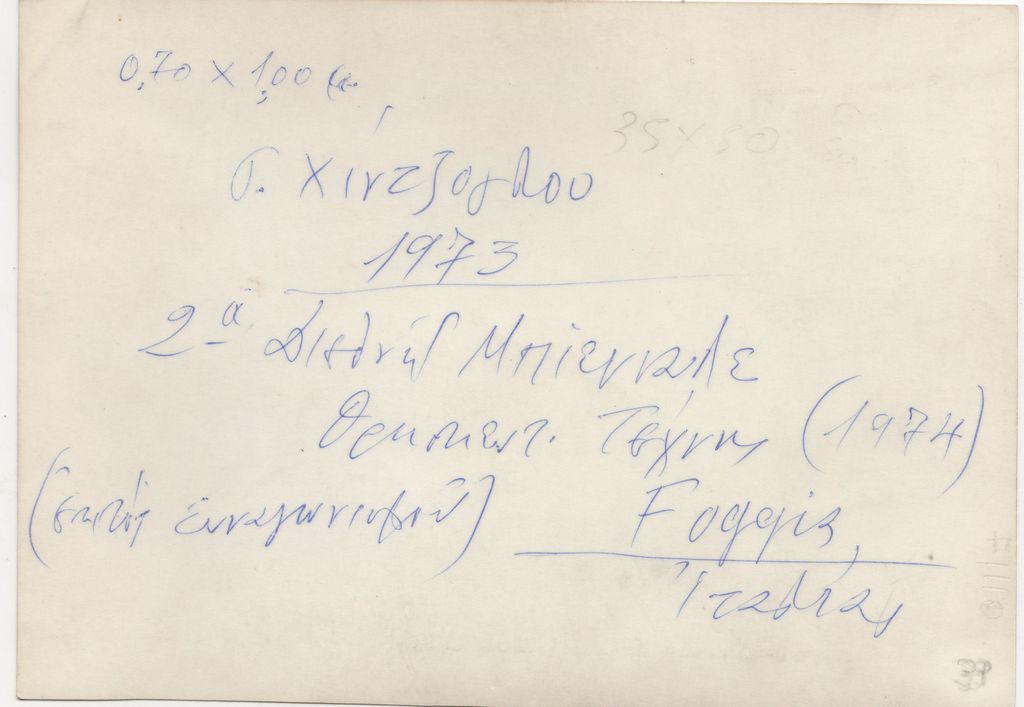 0,70 X 1,00 μ.
35X50
Γ. Χίντζογλου
1973
2α Διεθνής Μπιενναλε
Θρησκευτ. Τέχνης (1974)
(ἐκτός συναγωνισμοῦ) Foggia,
Ἰταλίας
39